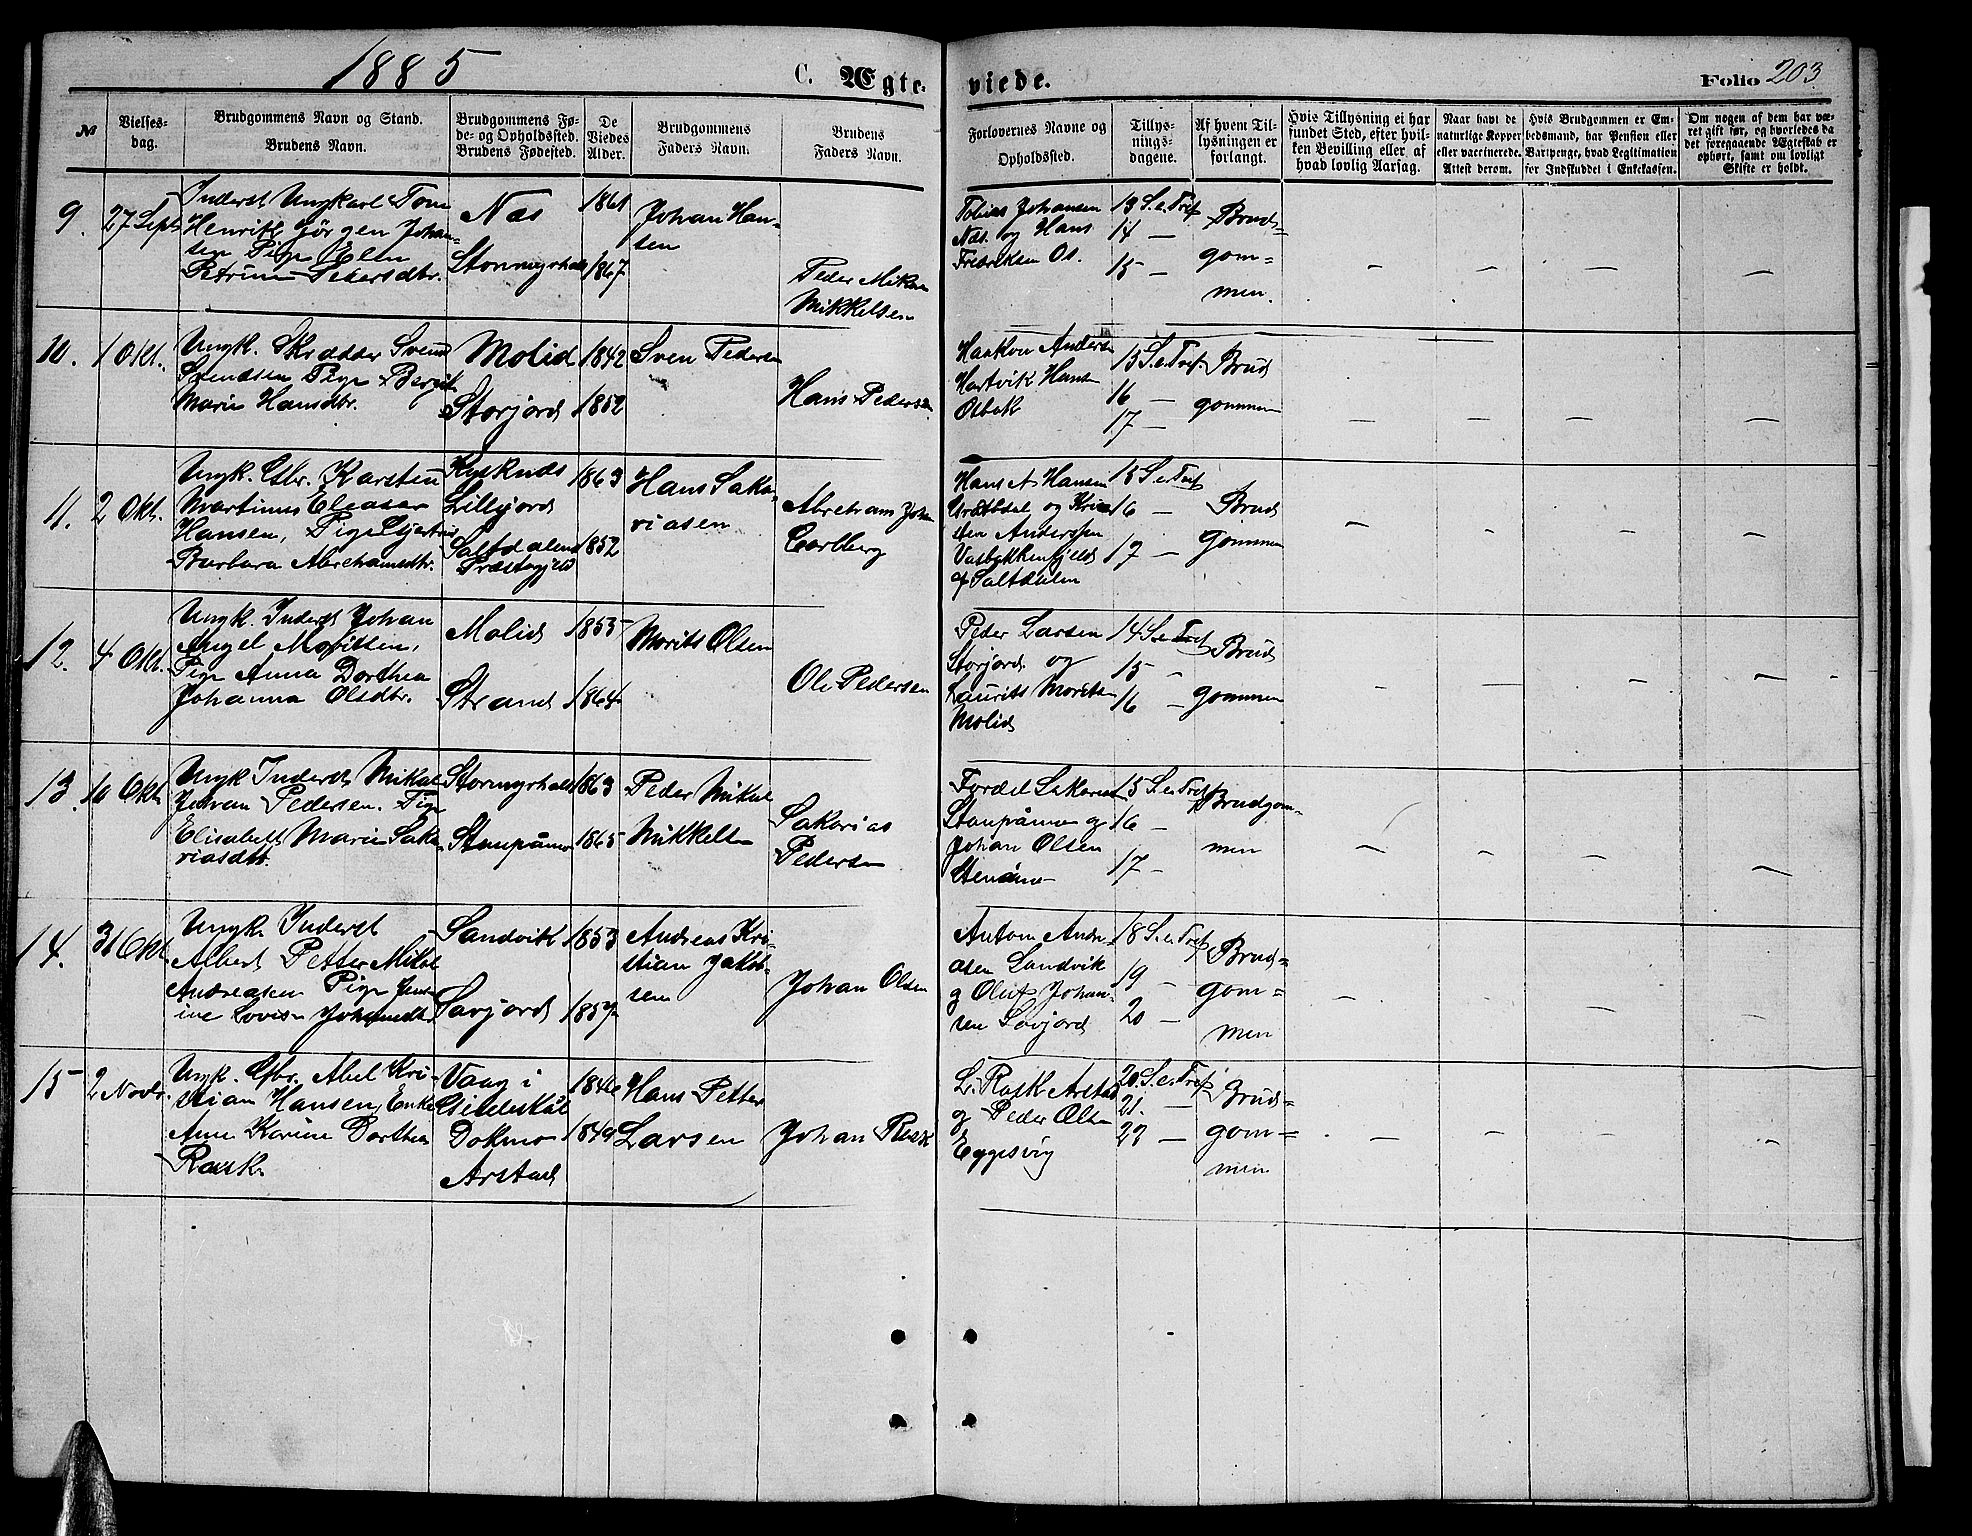 1885
C. Ægte-
viede.
Folio 203
№
Vielses-
dag.
Brudgommens Navn og Stand.
Brudens Navn.
Brudgommens Fø-
de- og Opholdssted.
Brudens Fødested.
De
Viedes
Alder.
Brudgommens
Faders Navn.
Brudens
Faders Navn.
Forlovernes Navne og
Opholdssted.
Tillys-
nings-
dagene.
Af hvem Til-
lysningen er
forlangt.
Hvis Tillysning ei har
fundet Sted, efter hvil-
ken Bevilling eller af
hvad lovlig Aarsag.
Naar havt de
naturlige Kopper
eller vaccinerede.
Attest derom.
Hvis Brudgommen er Em-
bedsmand, har Pension eller
Vartpenge, hvad Legitimation
for Indskuddet i Enkekassen.
Om nogen af dem har væ-
ret gift før, og hvorledes da
det foregaaende Ægteskab er
ophørt, samt om lovligt
Skifte er holdt.
9. 27 Sept
Inderst Ungkarl Tom
Henrik Jørgen Johan-
sen Pige Elen
Petrine Pedersdtr.
Næs
Stormyrhals
1861
1867
Johan Han-
sen
Peder Mikal
Mikkelsen
Tobias Johansen
Næs. og Hans
Fredriksen Os.
13 S. e. Tref
14 —
15 —
Brud=
gom=
men.
10. 1 Okt.
Ungk. Skrædder Svend
Svendsen Pige Bergit
Marie Hansdtr.
Molid
Storjord
1842
1852
Sven Pedersen
Hans Pedersen
Haakon Andersen
Hartvik Hansen
Osbak
15 S. e. Tref.
16 —
17 —
Brud
gommen
11. 2 Okt.
Ungk. Gbr. Karsten
Martinus Eleasar
Hansen, Pige Gjertrud
Barbara Abrahamsdtr.
Lillejord
Saltdalens
Præstegjeld
1863
1852
Hans Saka-
riasen
Abraham Joh
Carlberg
Hans A Hansen
og Kris
sten Anderssen
Vasbakkenfjeld
af Saltdalen
15 S. e. Tref
16 —
17 —
Brud
gommen
12. 4 Okt.
Ungk. Inderst Johan
Angel Moritsen,
Pige Anna Dorthea
Johanna Olsdtr.
Molid
Strand
1855
1864
Morits Olsen
Ole Pedersen
Peder Larsen
Storjord og
Laurits Moritsen
Molid
14 S. e. Tref
15 -
16 —
Brud
gommen
13. 10 Okt.
Ungk Inderst Mikal
Johan Pedersen. Pige
Elisabeth Marie Saka-
riasdtr.
Stormyrhals
Staupåmo
1863
1865
Peder Mikal
Mikkelsen
Sakarias
Pedersen
Fordel Sakariasen
Staupåmo og
Johan Olsen
Stenåmo
15 S. e. Tref
16 —
17 -
Brudgom-
men
14. 31 Okt.
Ungk. Inderst
Albert Petter Mikal
Andreasen Pige Jens-
ine Lovise Johansdtr
Sandvik
Sørjord
1853
1857
Andreas Kri-
stian Jakob-
sen
Johan Olsen
Anton Andre-
asen Sandvik
og Oluf Johan-
sen Sørjord
18 S. e. Tref
19 —
20 —
Brud=
gom=
men
15 2 Novbr.
Ungk. Gbr. Abel Kri-
stian Hansen, Enke
Anne Karine Dorthea
Rask.
Vaag i
Gildeskål
Dokmo
Arstad
1846
1849
Hans Petter
Larsen
Johan Rask
L. Rask Arstad
og Peder Olsen
Eggesvig
20. S. e. Tref
21. —
22 —
Brud=
gom=
men